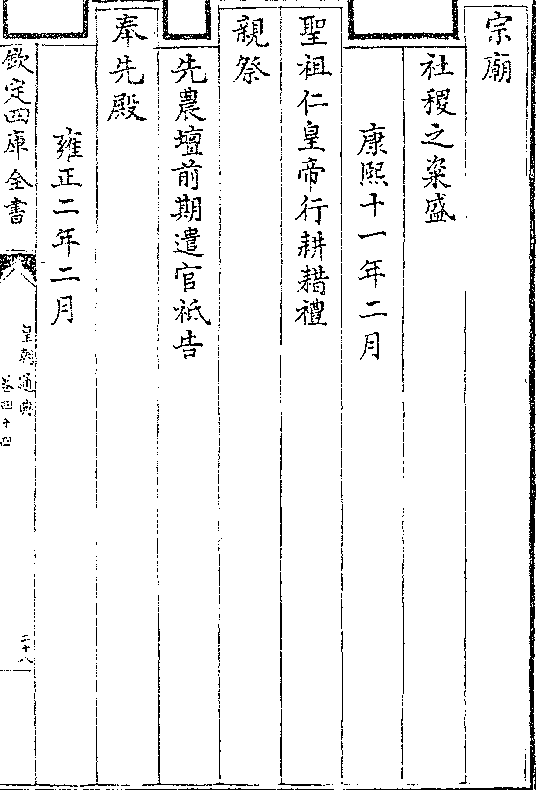 宗廟
社稷之粢盛
康熙十一年二月
聖祖仁皇帝行耕耤禮
親祭
先農壇前期遣官祗告
奉先殿
雍正二年二月
欽定四庫全書
皇朝通典
卷四十四
二十八